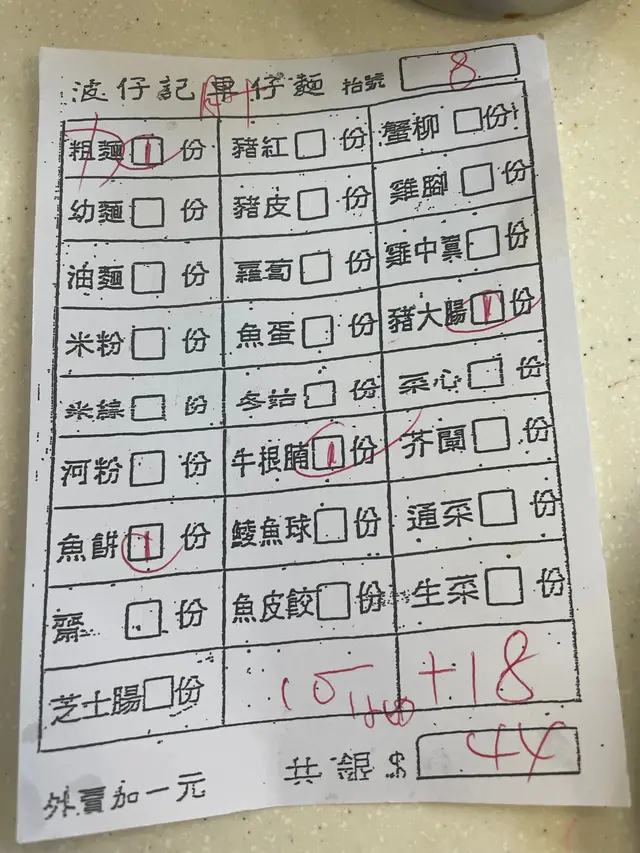 波仔記車仔麵 抬號 8
粗麵 1 份 豬紅 份 蟹柳 份
幼麵 份 豬皮 份 雞腳 份
油麵 份 蘿蔔 份 雞中翼 份
米粉 份 魚蛋 份 豬大腸 1 份
米線 份 冬菇 份 菜心 份
河粉 份 牛根腩 1 份 芥蘭 份
魚餅 1 份 鯪魚球 份 通菜 份
齋 份 魚皮餃 份 生菜 份
芝士腸 份 +18
共銀$ 44
外賣加一元